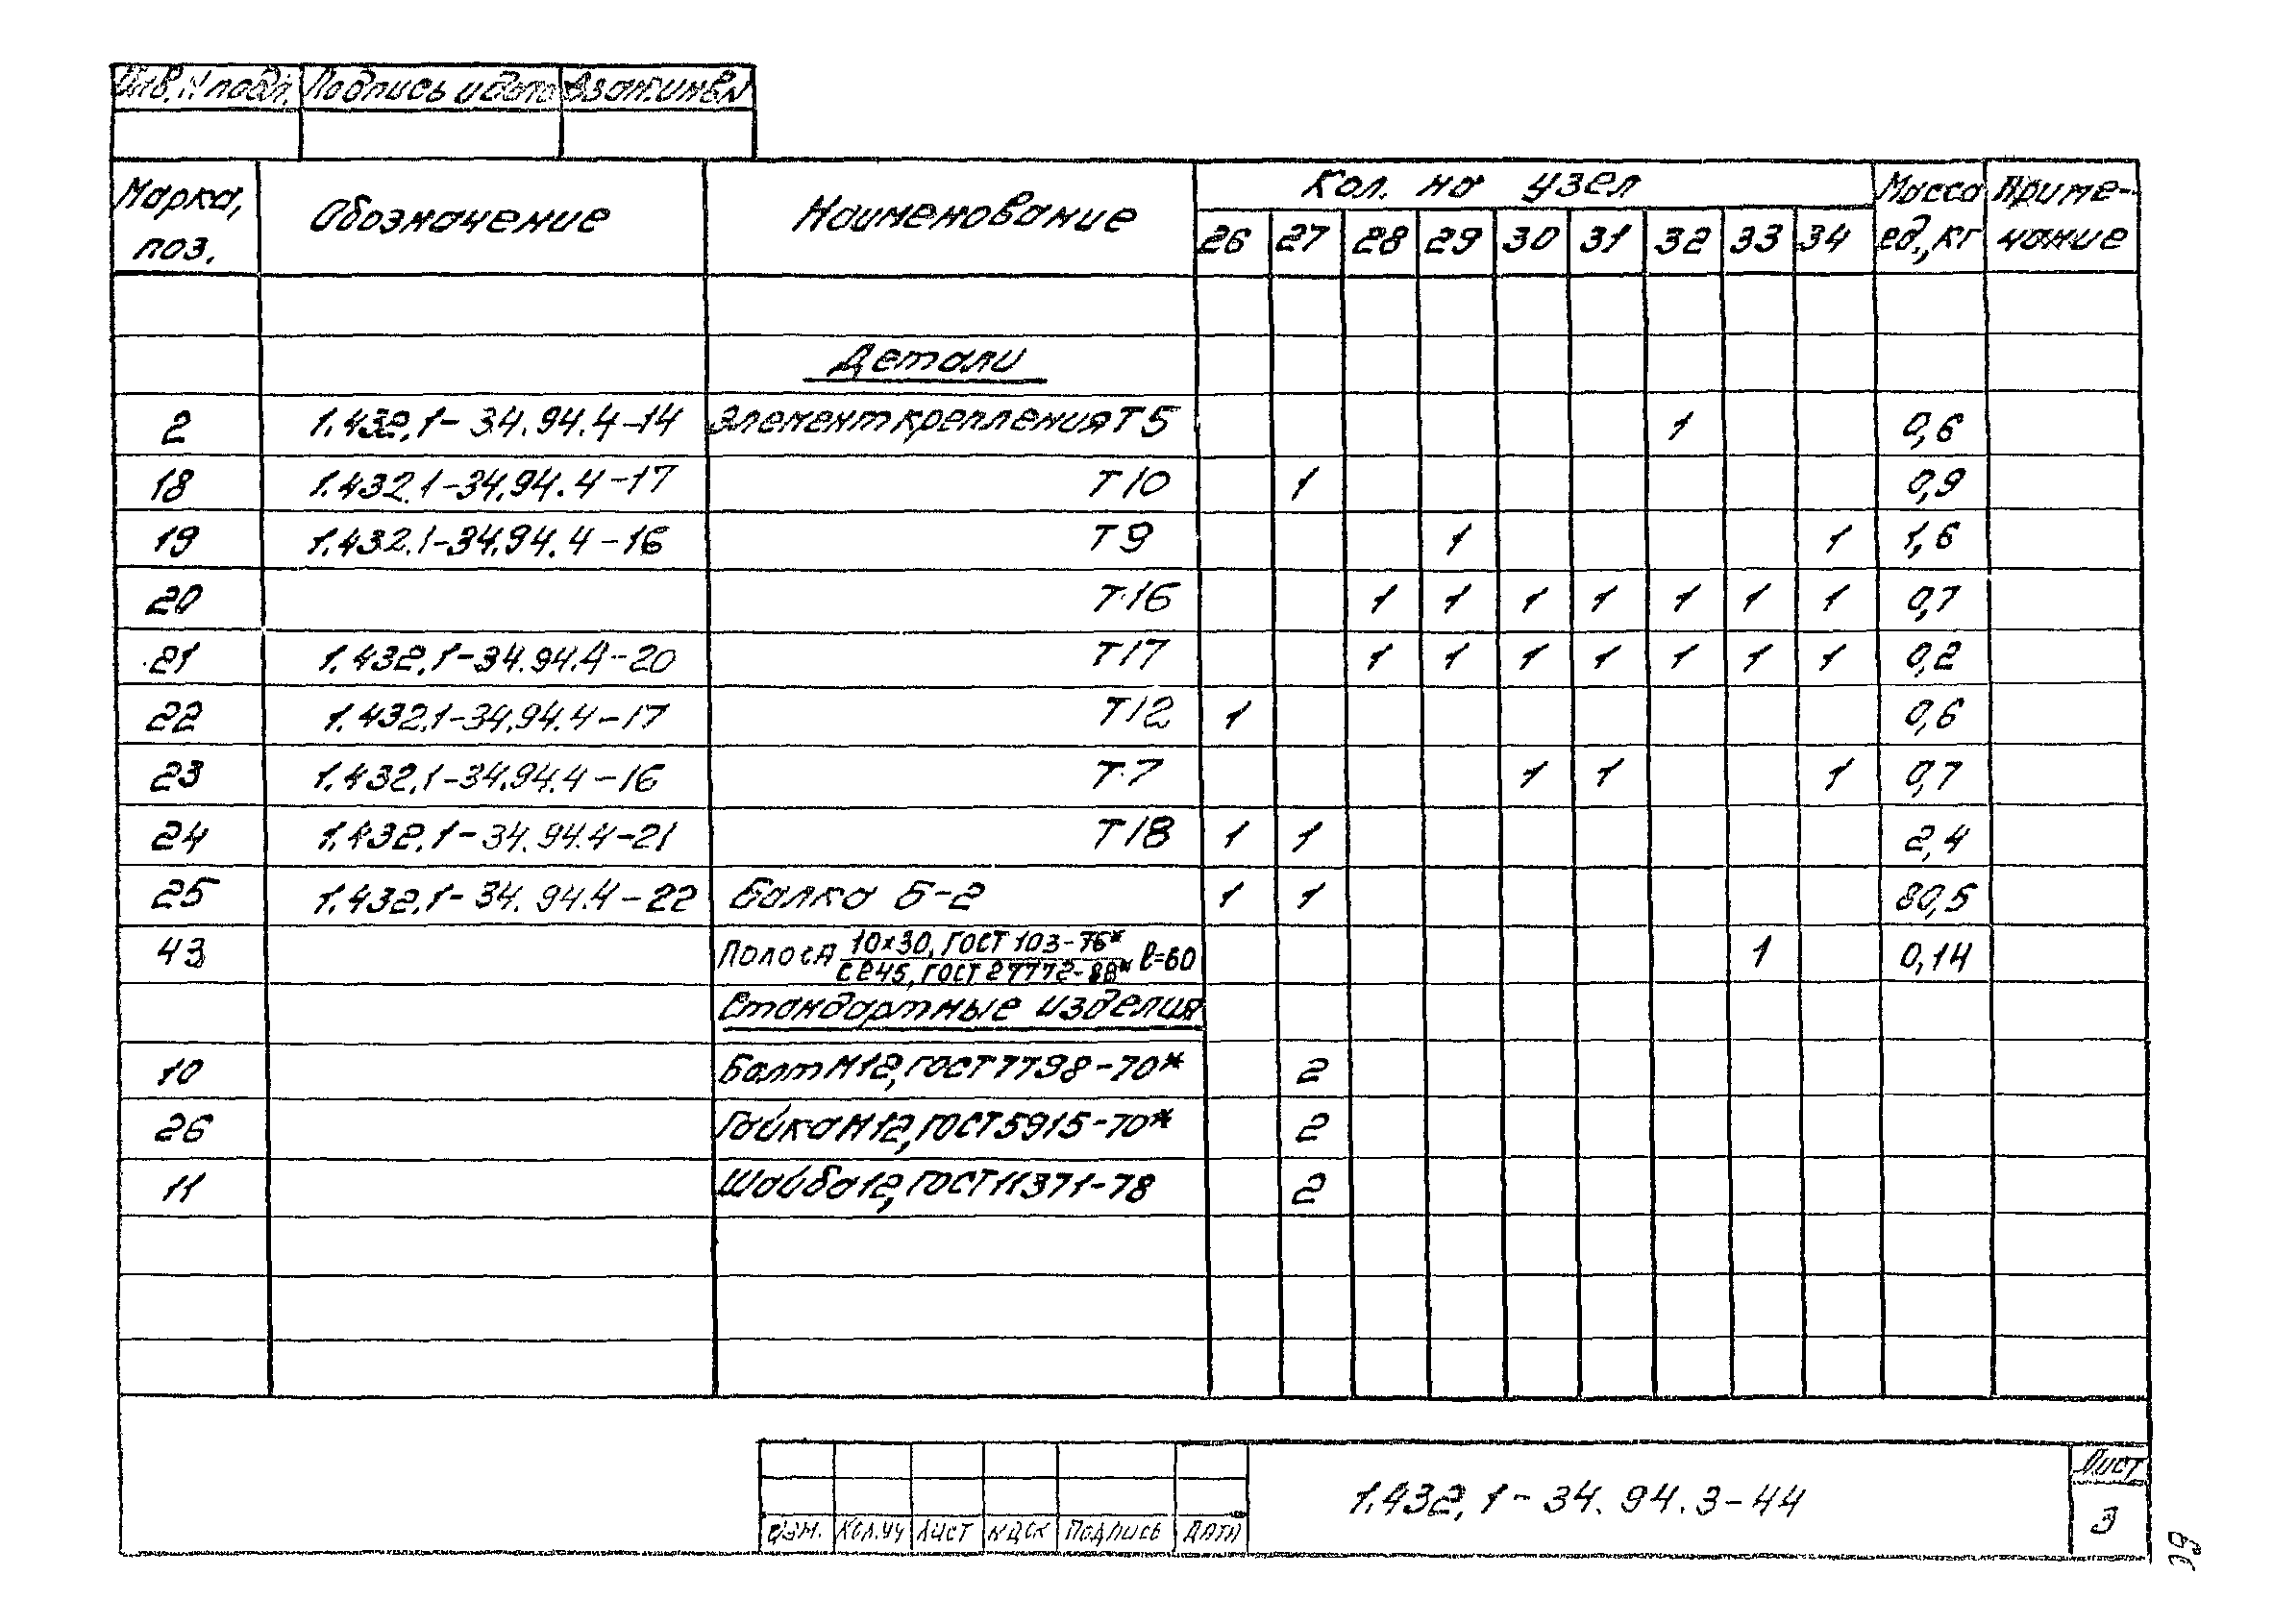 Инв. N подл. Подпись и дата Взам. инв. N
Марка, поз. Обозначение Наименование Кол. на узел Масса ед., кг Приме-чание
26 27 28 29 30 31 32 33 34
Детали
2 1.432.1-34.94.4-14 Элемент крепления Т5 1 0,6
18 1.432.1-34.94.4-17 Т10 1 0,9
19 1.432.1-34.94.4-16 Т9 1 1 1,6
20 Т16 1 1 1 1 1 1 1 0,7
21 1.432.1-34.94.4-20 Т17 1 1 1 1 1 1 1 0,2
22 1.432.1-34.94.4-17 Т12 1 0,6
23 1.432.1-34.94.4-16 Т7 1 1 1 0,7
24 1.432.1-34.94.4-21 Т18 1 1 2,4
25 1.432.1-34.94.4-22 Балка Б-2 1 1 80,5
43 Полоса 10х30, ГОСТ 103-76* 1 0,14
С245, ГОСТ 27772-88* ℓ=60
Стандартные изделия
10 Болт М12, ГОСТ 7798-70* 2
26 Гайка М12, ГОСТ 5915-70* 2
11 Шайба 12, ГОСТ 11371-78 2
1.432.1-34.94.3-44
Лист
3
Изм. Кол.уч Лист Nдок Подпись Дата
39